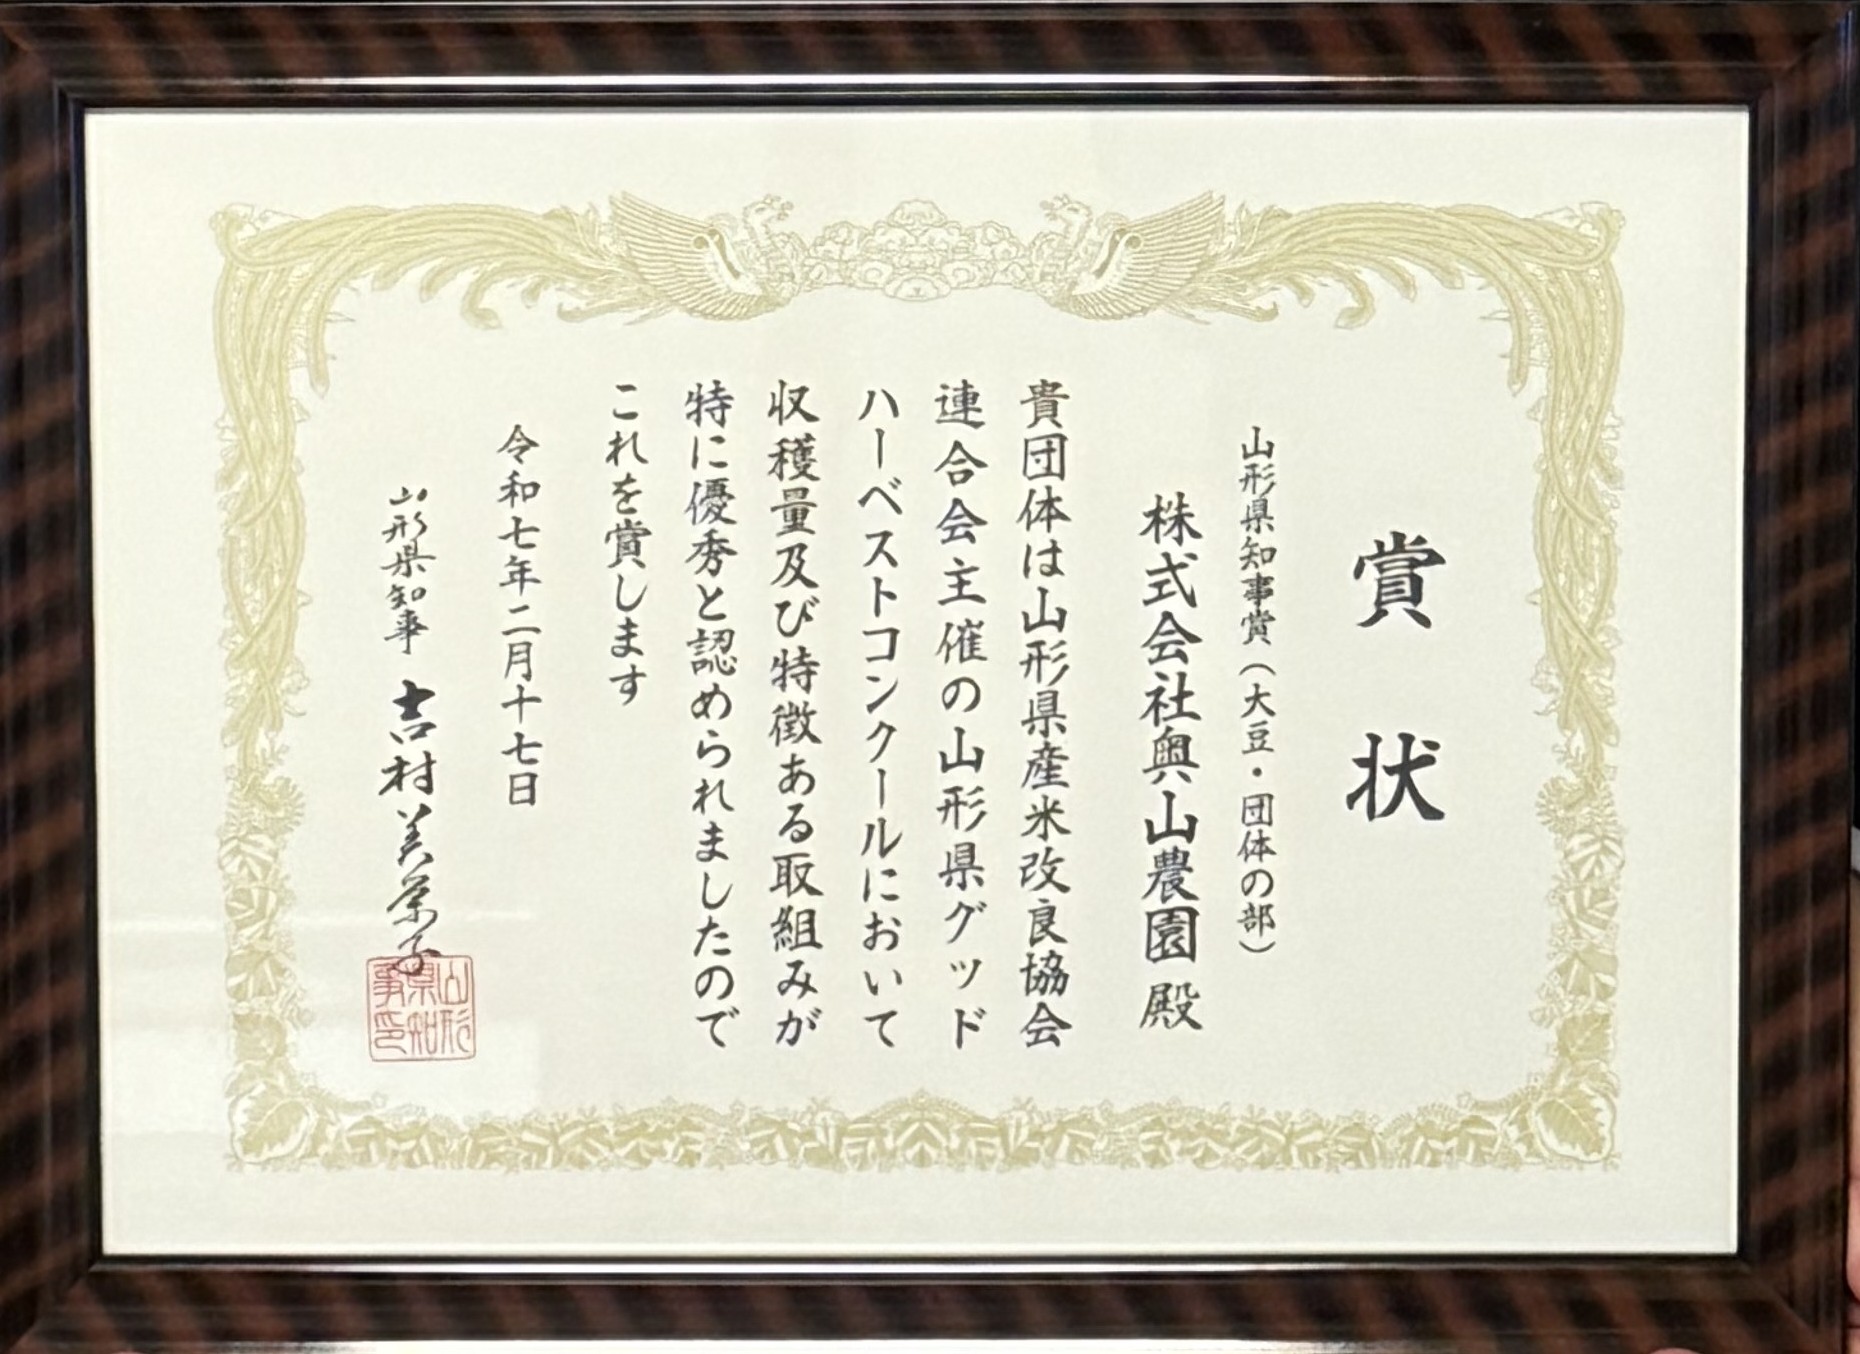 賞状
山形県知事賞(大豆・団体の部)
株式会社奥山農園 殿
貴団体は山形県産米改良協会
連合会主催の山形県グッド
ハーベストコンクールにおいて
収穫量及び特徴ある取組みが
特に優秀と認められましたので
これを賞します
令和七年二月十七日
山形県知事 吉村美栄子
山形県知事印